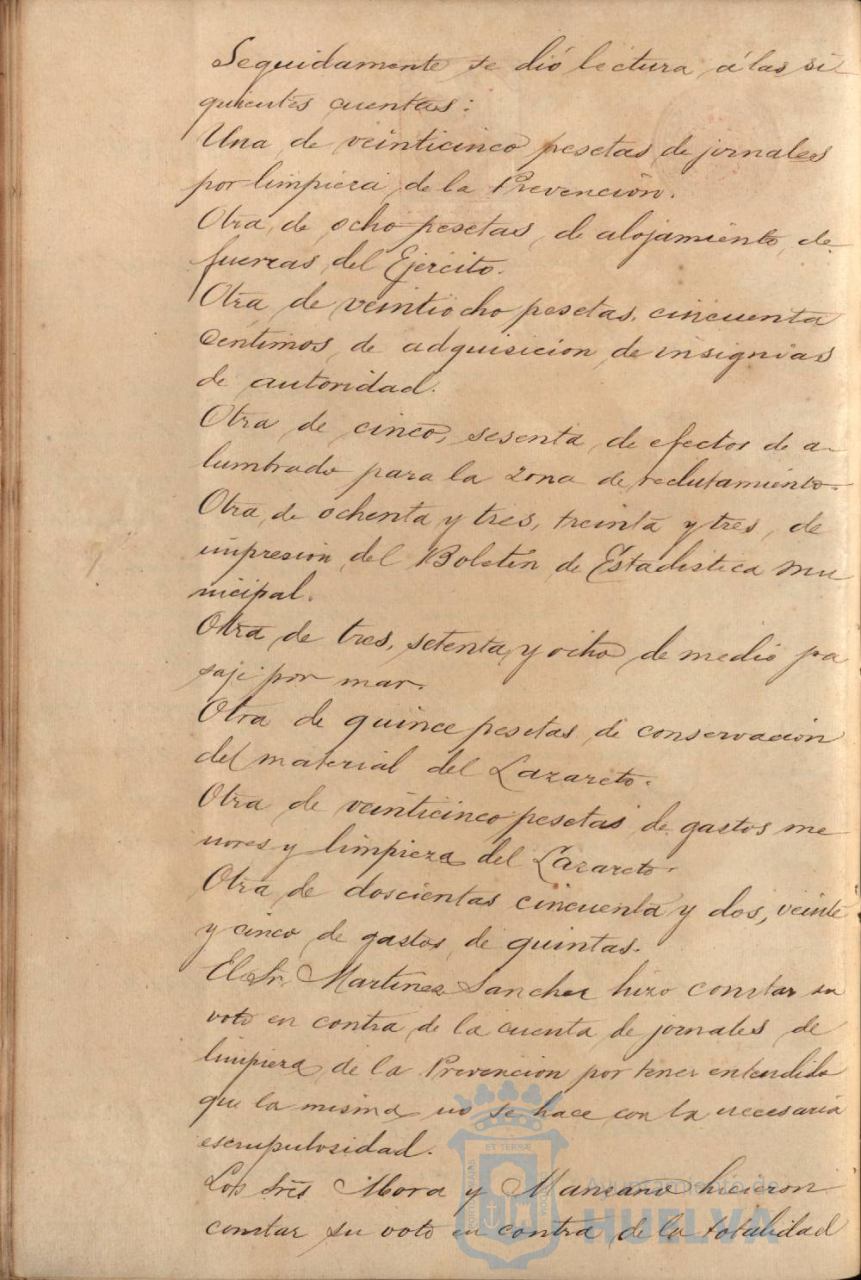 Seguidamente se dió lectura á las si
guientes cuentas:
Una de veinticinco pesetas de jornales
por limpieza de la Prevención.
Otra de ocho pesetas de alojamiento de
fuerzas del Ejército.
Otra de veintiocho pesetas, cincuenta
centimos de adquisicion de insignias
de autoridad.
Otra de cinco, sesenta de efectos de a-
lumbrado para la zona de reclutamiento.
Otra de ochenta y tres, treinta y tres, de
impresión del Boletín de Estadistica mu
nicipal.
Otra de tres, setenta y ocho de medio pa
saje por mar.
Otra de quince pesetas de conservación
del material del Lazareto.
Otra de veinticinco pesetas de gastos me
nores y limpieza del Lazareto.
Otra de doscientas cincuenta y dos, veinte
y cinco de gastos de quintas.
El Sr. Martínez Sanchez hizo constar su
voto en contra de la cuenta de jornales de
limpieza de la Prevencion por tener entendido
que la misma no se hace con la necesaria
escrupulosidad.
Los Srēs Mora y Manzano hicieron
constar su voto en contra de la totalidad
Ayuntamiento de
HUELVA